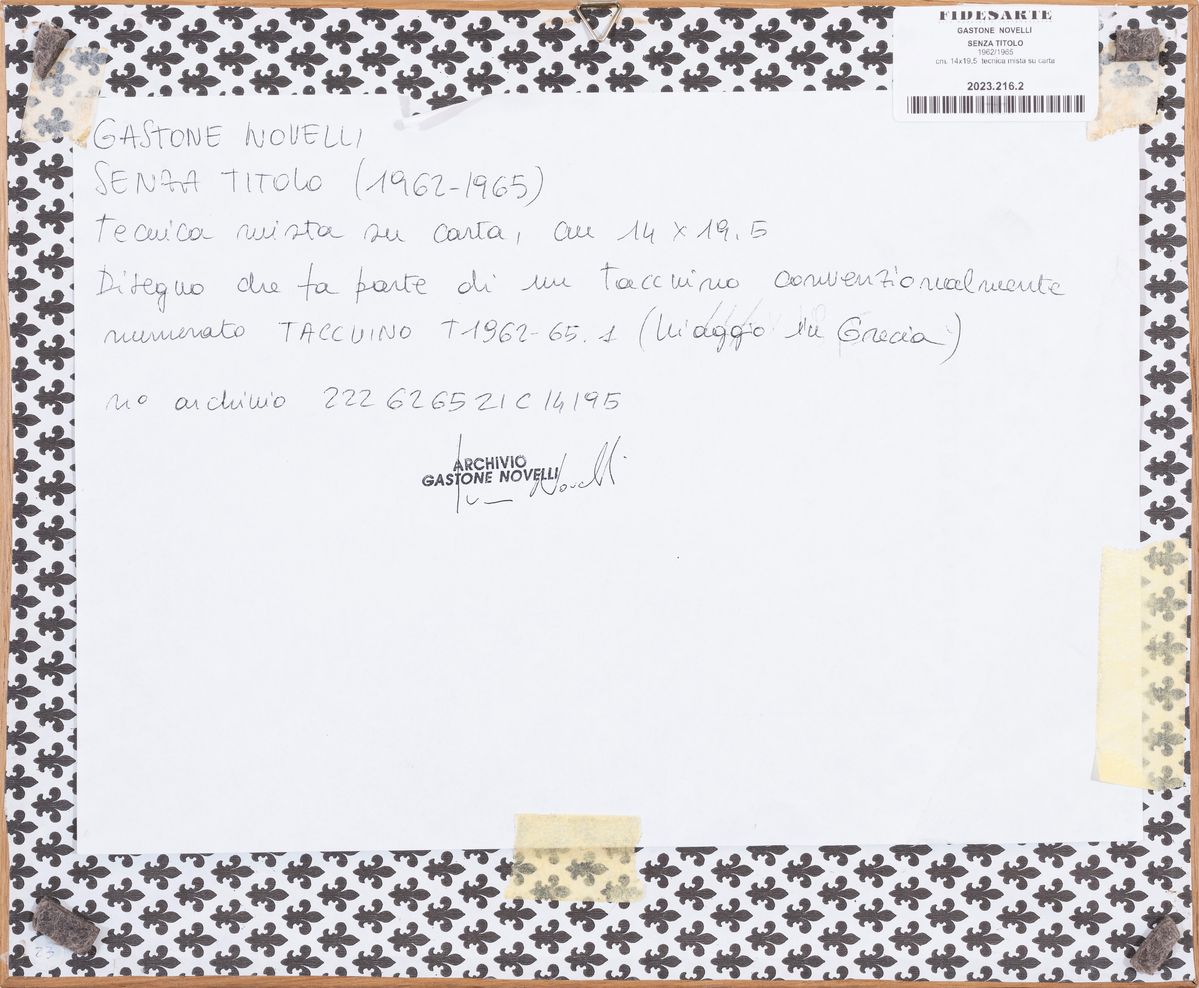 FIDESARTE
GASTONE NOVELLI
SENZA TITOLO
1962/1965
cm. 14x19,5 tecnica mista su carta
2023.216.2
GASTONE NOVELLI
SENZA TITOLO (1962-1965)
tecnica mista su carta, cm 14 x 19.5
Disegno che fa parte di un taccuino convenzionalmente
numerato TACCUINO T1962-65.1 (Viaggio in Grecia)
n° archivio 222 6265 21C 14195
ARCHIVIO
GASTONE NOVELLI
Novelli
23